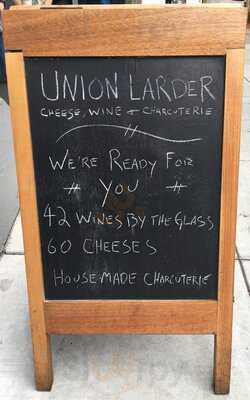 UNION LARDER
CHEESE, WINE + CHARCUTERIE
WE'RE READY FOR
# YOU #
42 WINES BY THE GLASS
60 CHEESES
HOUSE-MADE CHARCUTERIE